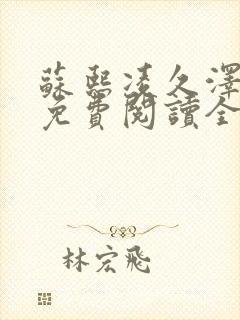 蘇熙凌久澤
免費閱讀全
林宏飛